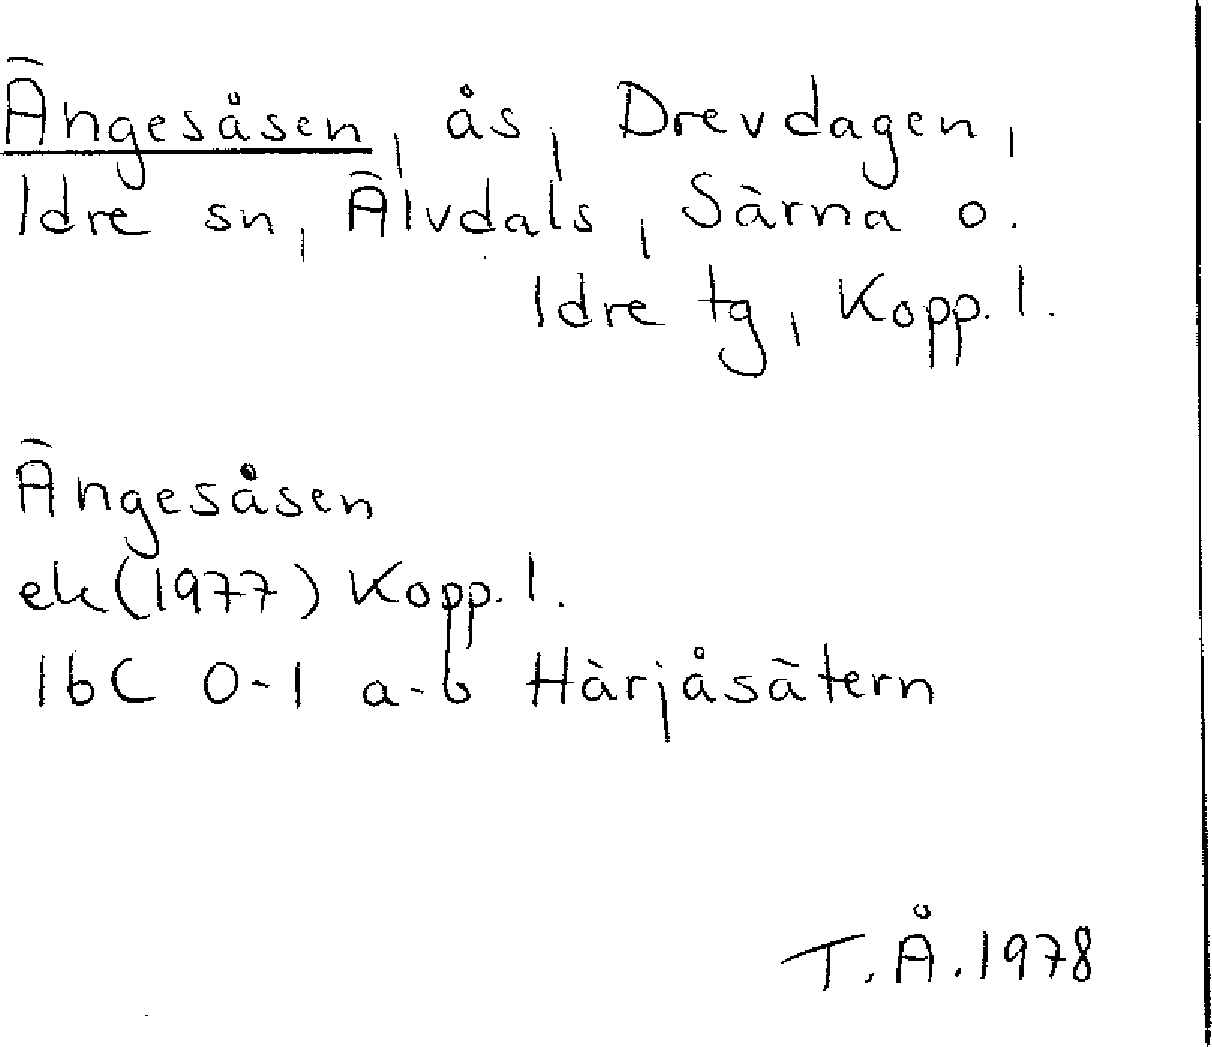 Ängesåsen, ås, Drevdagen,
Idre sn, Älvdals, Särna o.
Idre tg, Kopp. l.
Ängesåsen
ek (1977) Kopp. l.
16C 0-1 a-b Härjåsätern
T. Å. 1978